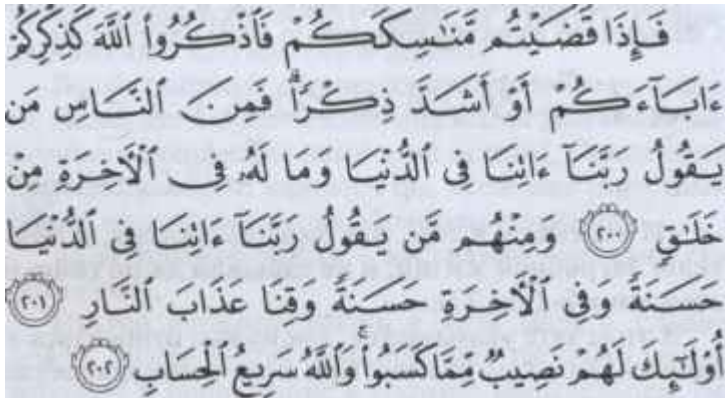 فَإِذَا قَضَيْتُم مَّنَـٰسِكَكُمْ فَٱذْكُرُوا۟ ٱللَّهَ كَذِكْرِكُمْ
ءَابَآءَكُمْ أَوْ أَشَدَّ ذِكْرًۭا ۗ فَمِنَ ٱلنَّاسِ مَن
يَقُولُ رَبَّنَآ ءَاتِنَا فِى ٱلدُّنْيَا وَمَا لَهُۥ فِى ٱلْـَٔاخِرَةِ مِنْ
خَلَـٰقٍۢ ٢٠٠ وَمِنْهُم مَّن يَقُولُ رَبَّنَآ ءَاتِنَا فِى ٱلدُّنْيَا
حَسَنَةًۭ وَفِى ٱلْـَٔاخِرَةِ حَسَنَةًۭ وَقِنَا عَذَابَ ٱلنَّارِ ٢٠١
أُو۟لَـٰٓئِكَ لَهُمْ نَصِيبٌۭ مِّمَّا كَسَبُوا۟ ۚ وَٱللَّهُ سَرِيعُ ٱلْحِسَابِ ٢٠٢